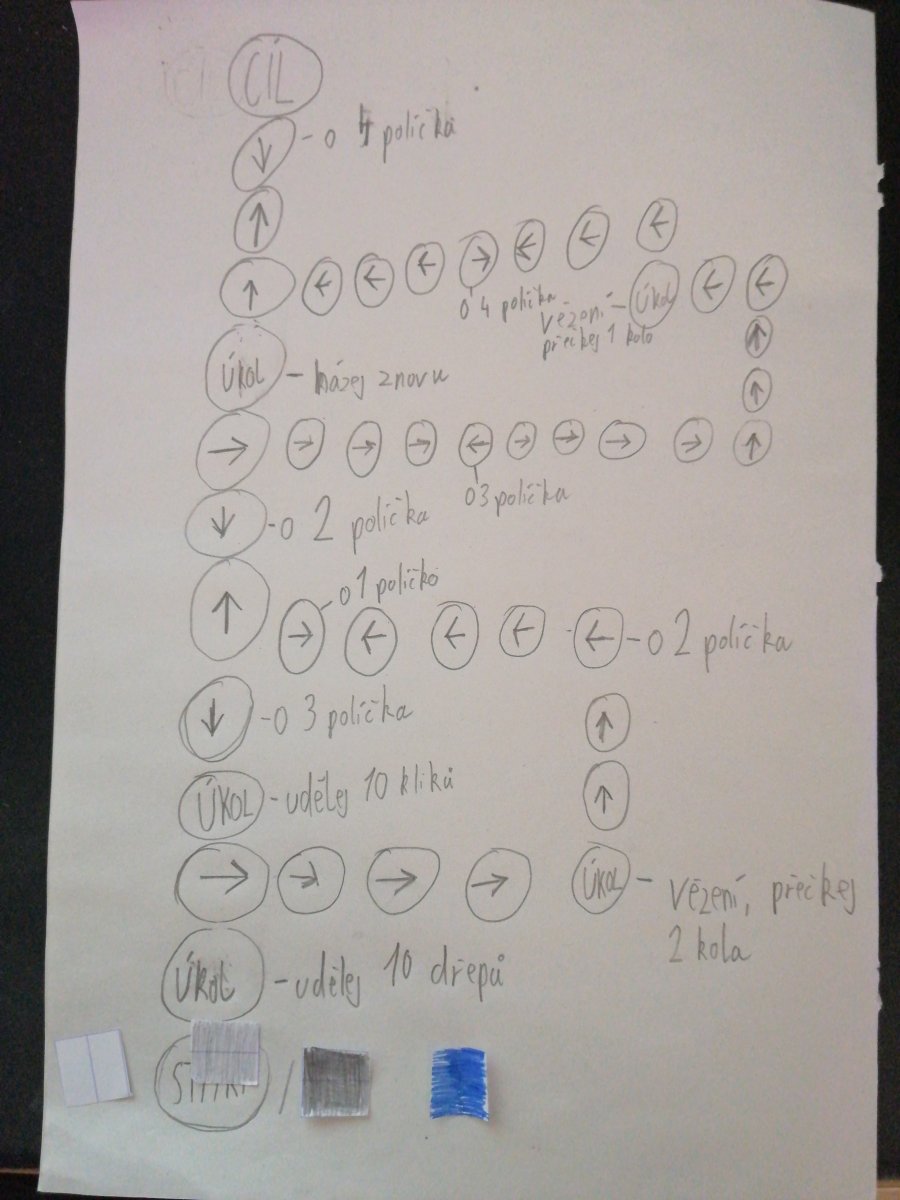 CÍL
- o 4 políčka
o 4 políčka
ÚKOL
Vězení -
přečkej 1 kolo
ÚKOL - házej znovu
o 3 políčka
- o 2 políčka
o 1 políčko
- o 2 políčka
- o 3 políčka
ÚKOL - udělej 10 kliků
ÚKOL - vězení, přečkej
2 kola
ÚKOL - udělej 10 dřepů
START